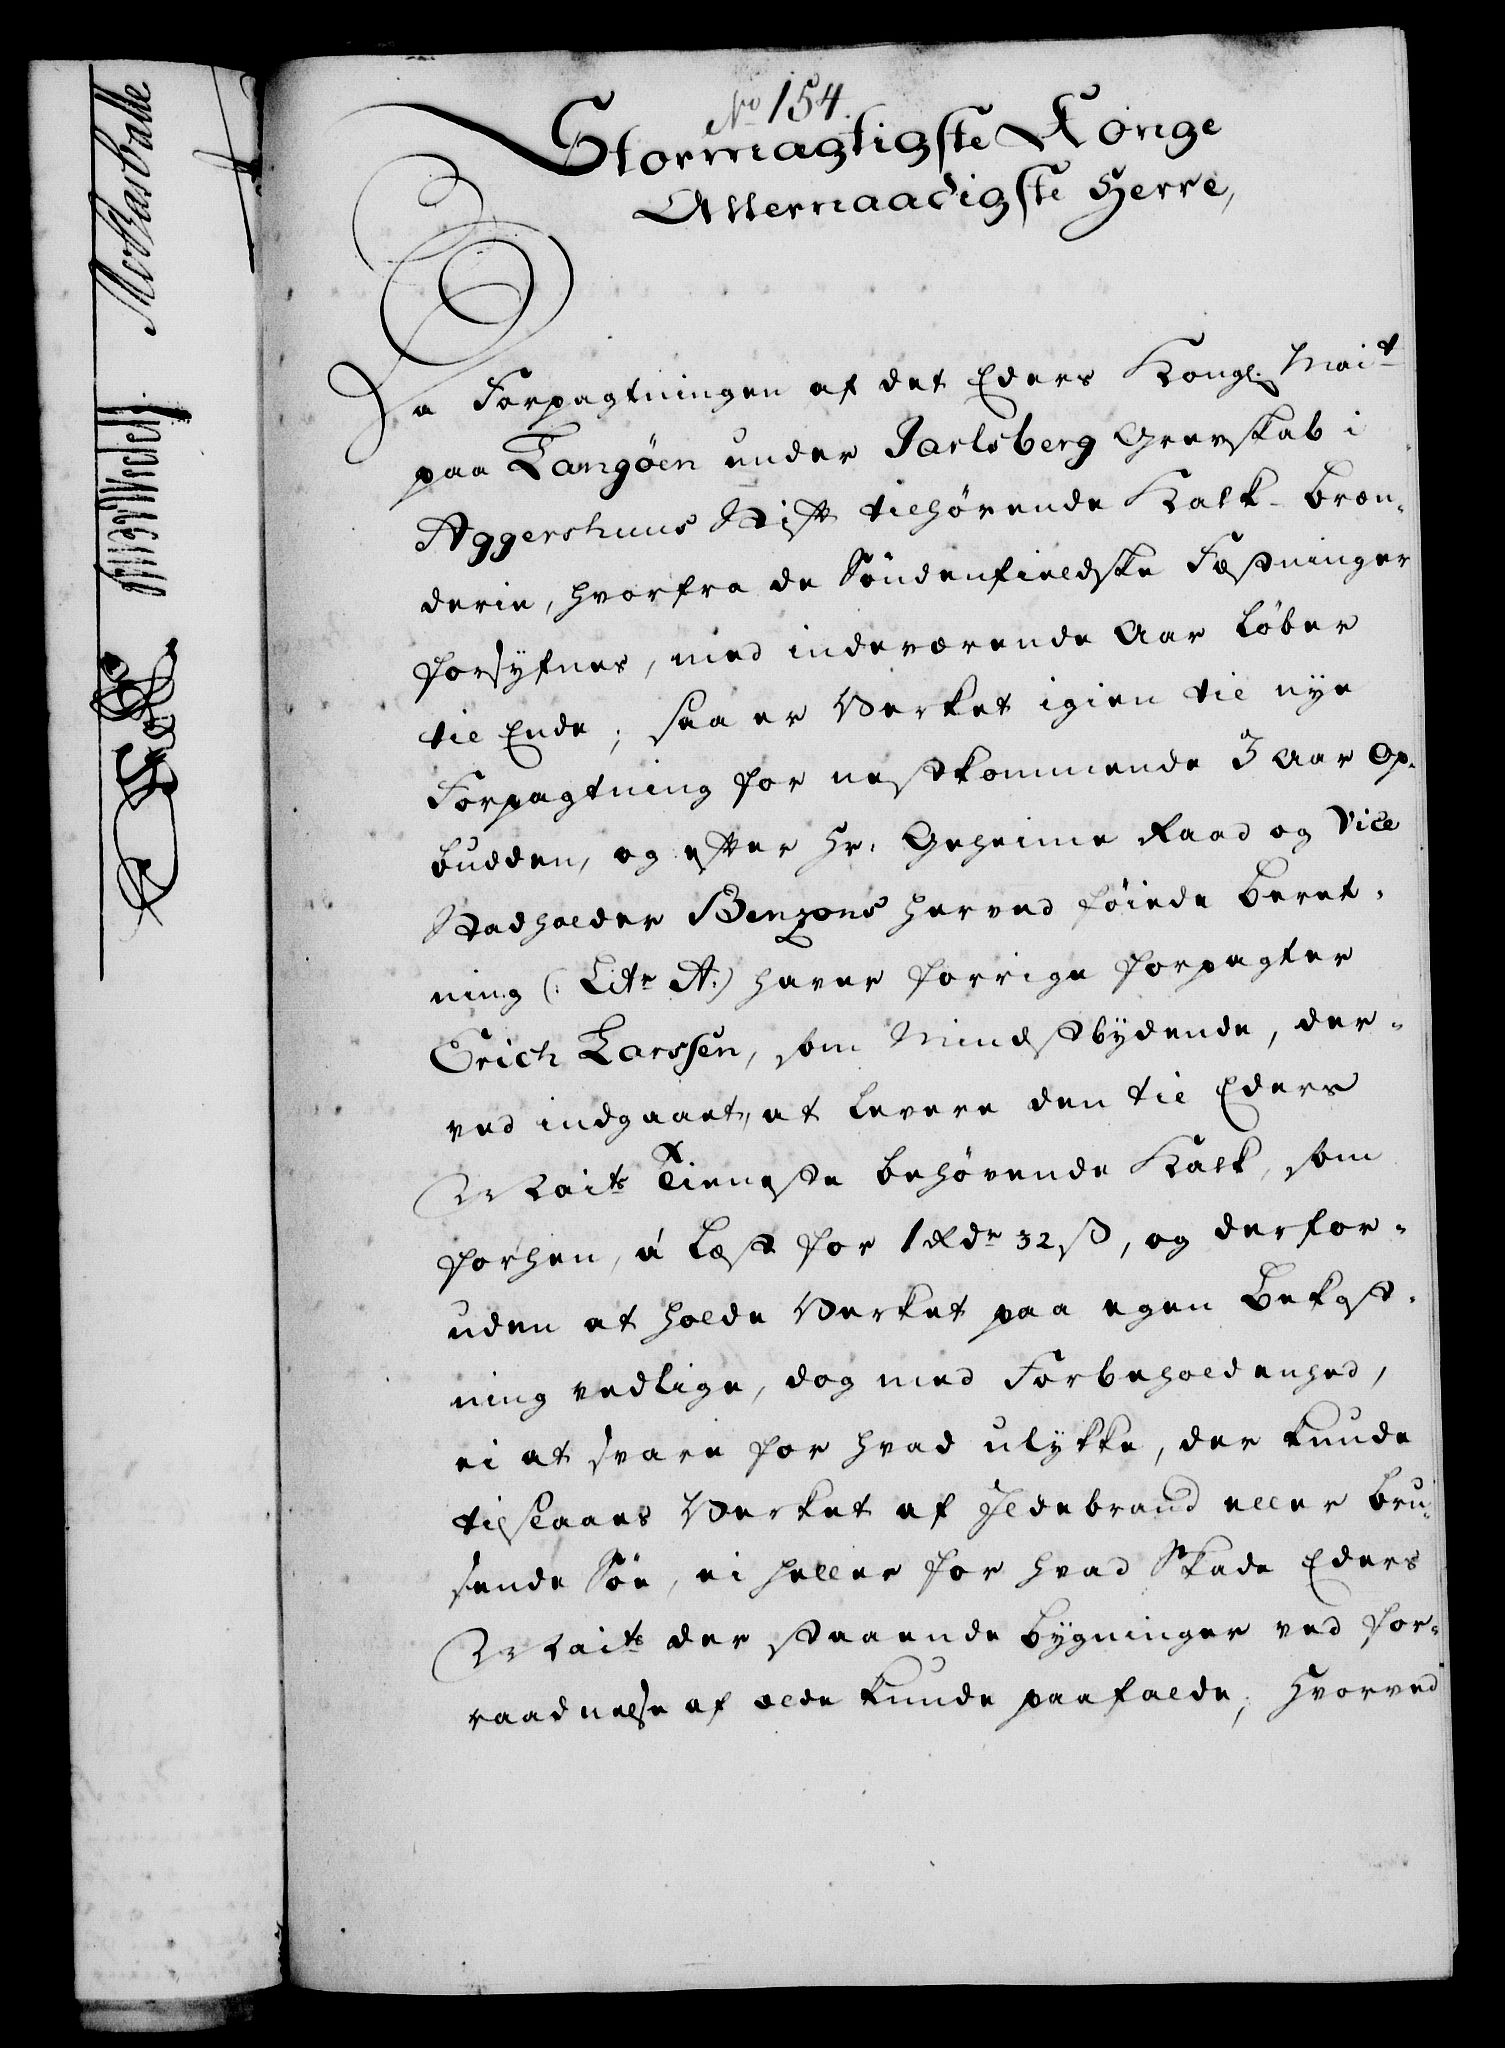 No 154.
Stormægtigste Konge
Allernaadigste Herre,
Da Forpagtningen af det Eders Kongl. Mait
paa Langöen under Jarlsberg Grevskab i
Aggershuus Stift tilhörende Kalk-Bræn-
derie, hvorfra de Söndenfieldske Fæstninger
forsÿfnes, med indeværende Aar löber
til Ende; saa er Verket igien til nÿe
Forpagtning for nestkommende 3 Aar op-
budden, og efter Hr. Geheime Raad og Vice
Stadholder Benzons herved föiede Beret-
ning (: Litr A:) haver forrige forpagter
Erich Larssen, som Mindstbÿdende, der-
ved indgaaet, at levere den til Eders
Maits Tieneste behövende Kalk, som
forhen, á Læst for 1 Rdr 32 ß, og derfor-
uden at holde Verket paa egen Bekost-
ning vedlige, dog med Forbeholdenhed,
ei at svare for hvad ulÿkke, der kunde
tilslaaes Verket af Ildebrand eller bru-
sende Söe, ei heller for hvad Skade Eders
Maits der staaende bÿgninger ved for-
raadnelse af ælde kunde paafalde; hvorved